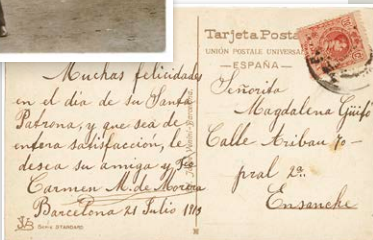 Tarjeta Posta
UNIÓN POSTALE UNIVERSA
— ESPAÑA —
Muchas felicidades
en el día de su Santa
Patrona, y que sea de
entera satisfacción, le
desea su amiga y
Carmen M. de Morera
Barcelona 21 Julio 1913
Señorita
Magdalena Güifo
Calle Aribau
pral 2ª
Ensanche